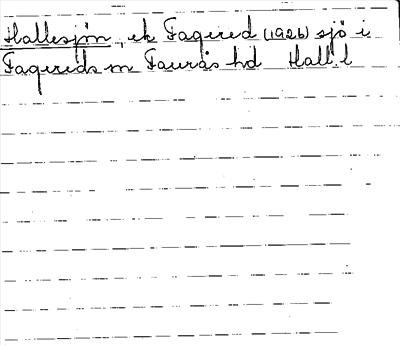 Hallesjön, ek Fagered (1926) sjö i
Fagereds sn Faurås hd Hall. l